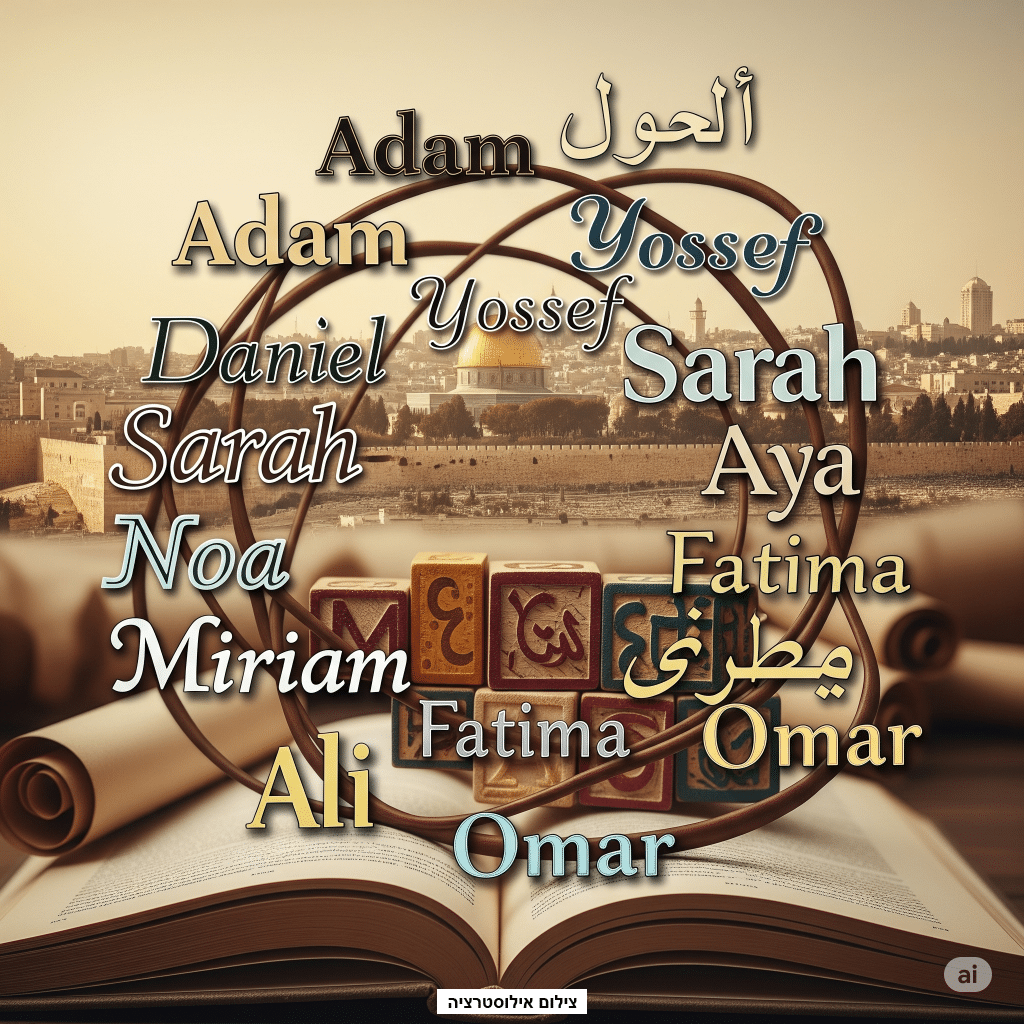 ألحول
Adam
Adam
Yossef
Yossef
Daniel
Sarah
Sarah
Aya
Noa
Fatima
Miriam
Fatima
Omar
Ali
Omar
ai
צילום אילוסטרציה